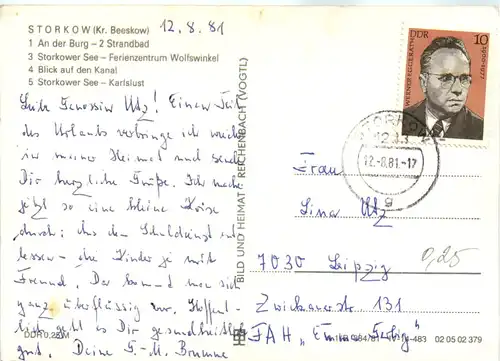 STORKOW (Kr. Beeskow)
12.8.81
1 An der Burg – 2 Strandbad
3 Storkower See – Ferienzentrum Wolfswinkel
4 Blick auf den Kanal
5 Storkower See – Karlslust
Liebe Genossin Utz! Einen Teil
des Urlaubs verbringe ich wieder
in meiner Heimat und sende
Dir herzliche Grüße. Ich mache
jetzt so eine kleine Krise
durch: aus dem Schuldienst ent-
lassen – die Kinder je mit
Freund. Da kommt man sich
ganz überflüssig vor. Hoffent-
lich geht es Dir gesundheitlich
gut. Deine
DDR 0,25 M
BILD UND HEIMAT REICHENBACH (VOGTL)
DDR
10
1900-1977
STORKOW
12.-8.81.-17
g
Frau
Lina Utz
7030 Leipzig
0,25
Zwickauerstr. 131
FAH "Emma
02 05 02 379